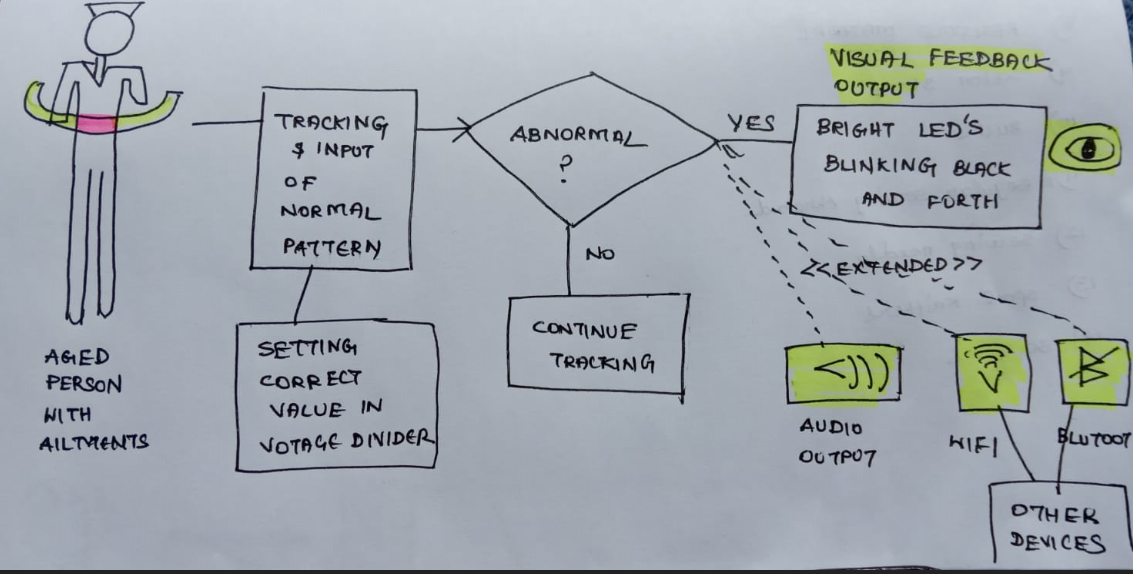 AGED
PERSON
WITH
AILTMENTS
TRACKING
& INPUT
OF
NORMAL
PATTERN
SETTING
CORRECT
VALUE IN
VOTAGE DIVIDER
ABNORMAL
?
NO
CONTINUE
TRACKING
YES
VISUAL FEEDBACK
OUTPUT
BRIGHT LED'S
BLINKING BLACK
AND FORTH
<<EXTENDED>>
AUDIO
OUTPUT
WIFI
BLUTOOT
OTHER
DEVICES